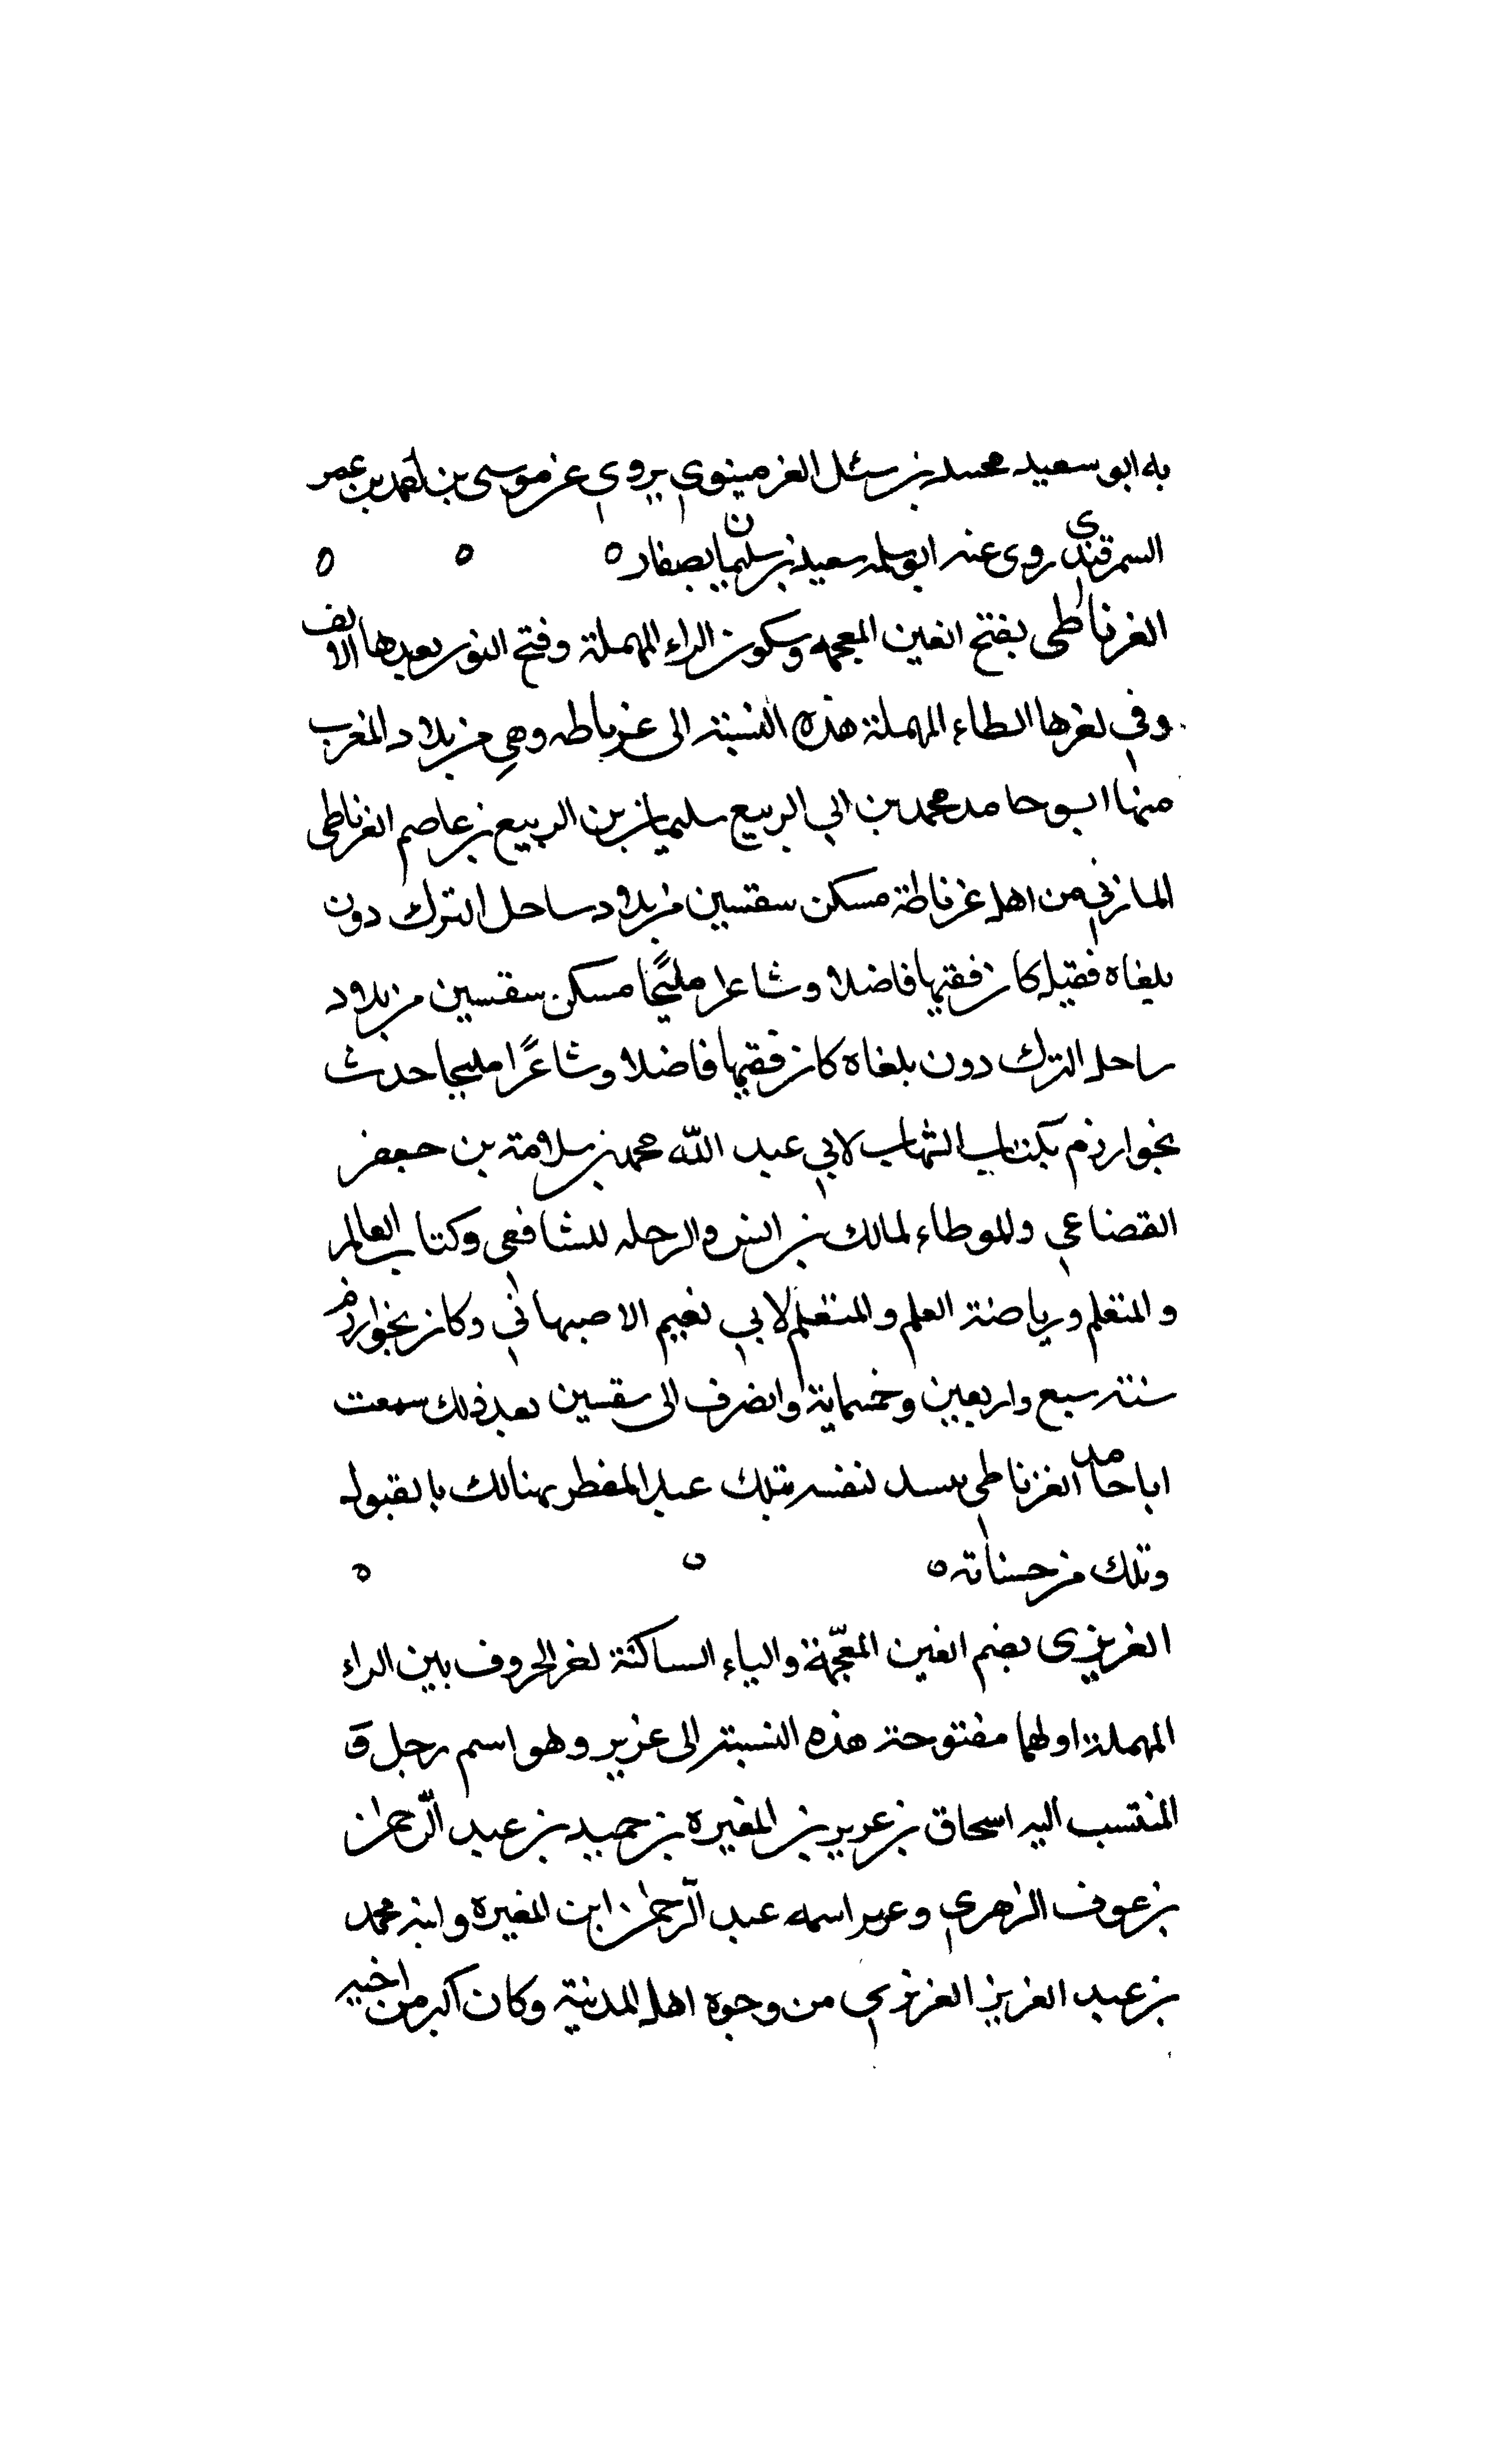 به ابو سعيد محمد بن سئل الغزمينوي يروي عن موسى بن احمد بن عمر
السمرقندي روى عنه ابو سلمه سعيد بن سليمان ه ه ه
الغرناطى بفتح الغين المعجمه وسكون الراء المهملة وفتح النون بعدها الالف
وفي اخرها الطاء المهملة هذه النسبة الى غرناطه وهي من بلاد المغرب
منها ابو حامد محمد بن ابي الربيع سليمان بن الربيع بن عاصم الغرناطى
المازني من اهل غرناطة مسكن سقسين من بلاد ساحل الترك دون
بلغاه فقيل كان فقيها فاضلا وشاعرا مليحًا مسكن سقسين من بلاد
ساحل الترك دون بلغاه كان فقيها فاضلا وشاعرًا مليحا حدث
بخوارزم بكتاب الشهاب لابي عبد الله محمد بن سلامة بن جعفر
القضاعي والموطاء لمالك بن انس والرحله للشافعى وكتاب العالم
والمتعلم ورياضة العلم والمتعلم لابي نعيم الاصبهاني وكان بخوارزم
سنة سبع واربعين وخمسماية وانصرف الى سقسين بعد ذلك سمعت
ابا حامد الغرناطى لنفسه عبد المفطر هنالك بالقبول
وتلك من حسناته ه ه ه
الغريرى بضم الغين المعجّمة والياء الساكنة اخر الحروف بين الراء
المهملة اولهما مفتوحة هذه النسبة الى غرير وهو اسم رجل و
المنتسب اليه اسحاق بن غرير بن المغيره بن حميد بن عبد الرّحمن
بن عوف الزهري وغرير اسمه عبد الرّحمن ابن المغيرة وابنه محمد
بن عبد العزيز الغريري من وجوه اهل المدنية وكان اكبر من اخيه